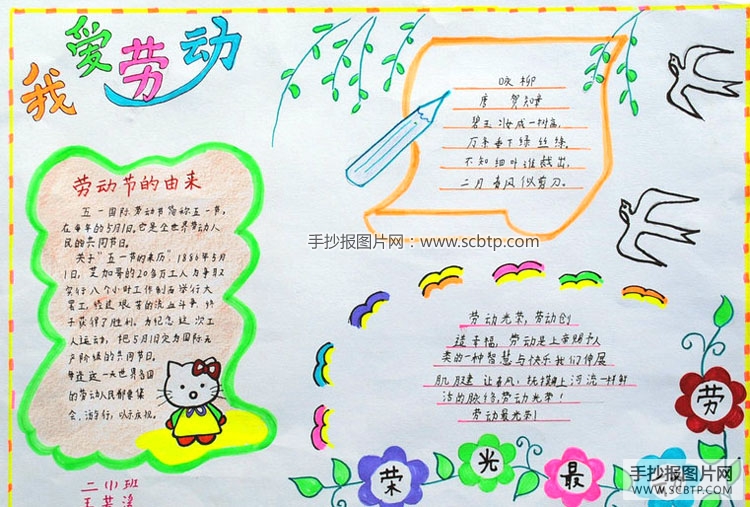 我爱劳动
劳动节的由来
五一国际劳动节简称五一节,
在每年的5月1日。它是全世界劳动人
民的共同节日。
关于"五一节的来历"1886年5月
1日,芝加哥的20多万工人为争取
实行八个小时工作制而举行大
罢工,经过艰苦的流血斗争,终
于获得了胜利。为纪念这次工
人运动,把5月1日定为国际无
产阶级的共同节日。
每逢这一天世界各国
的劳动人民都要集
会、游行,以示庆祝。
二(1)班
咏柳
唐 贺知章
碧玉妆成一树高,
万条垂下绿丝绦。
不知细叶谁裁出,
二月春风似剪刀。
手抄报图片网:www.scbtp.com
劳动光荣,劳动创
造幸福,劳动是上帝赐予人
类的一种智慧与快乐我们伸展
肌腱让春风,抚摸上河流一样
洁的脉络劳动光荣!
劳动最光荣!
劳
最
光
荣
手抄报图片网
WWW.SCBTP.COM